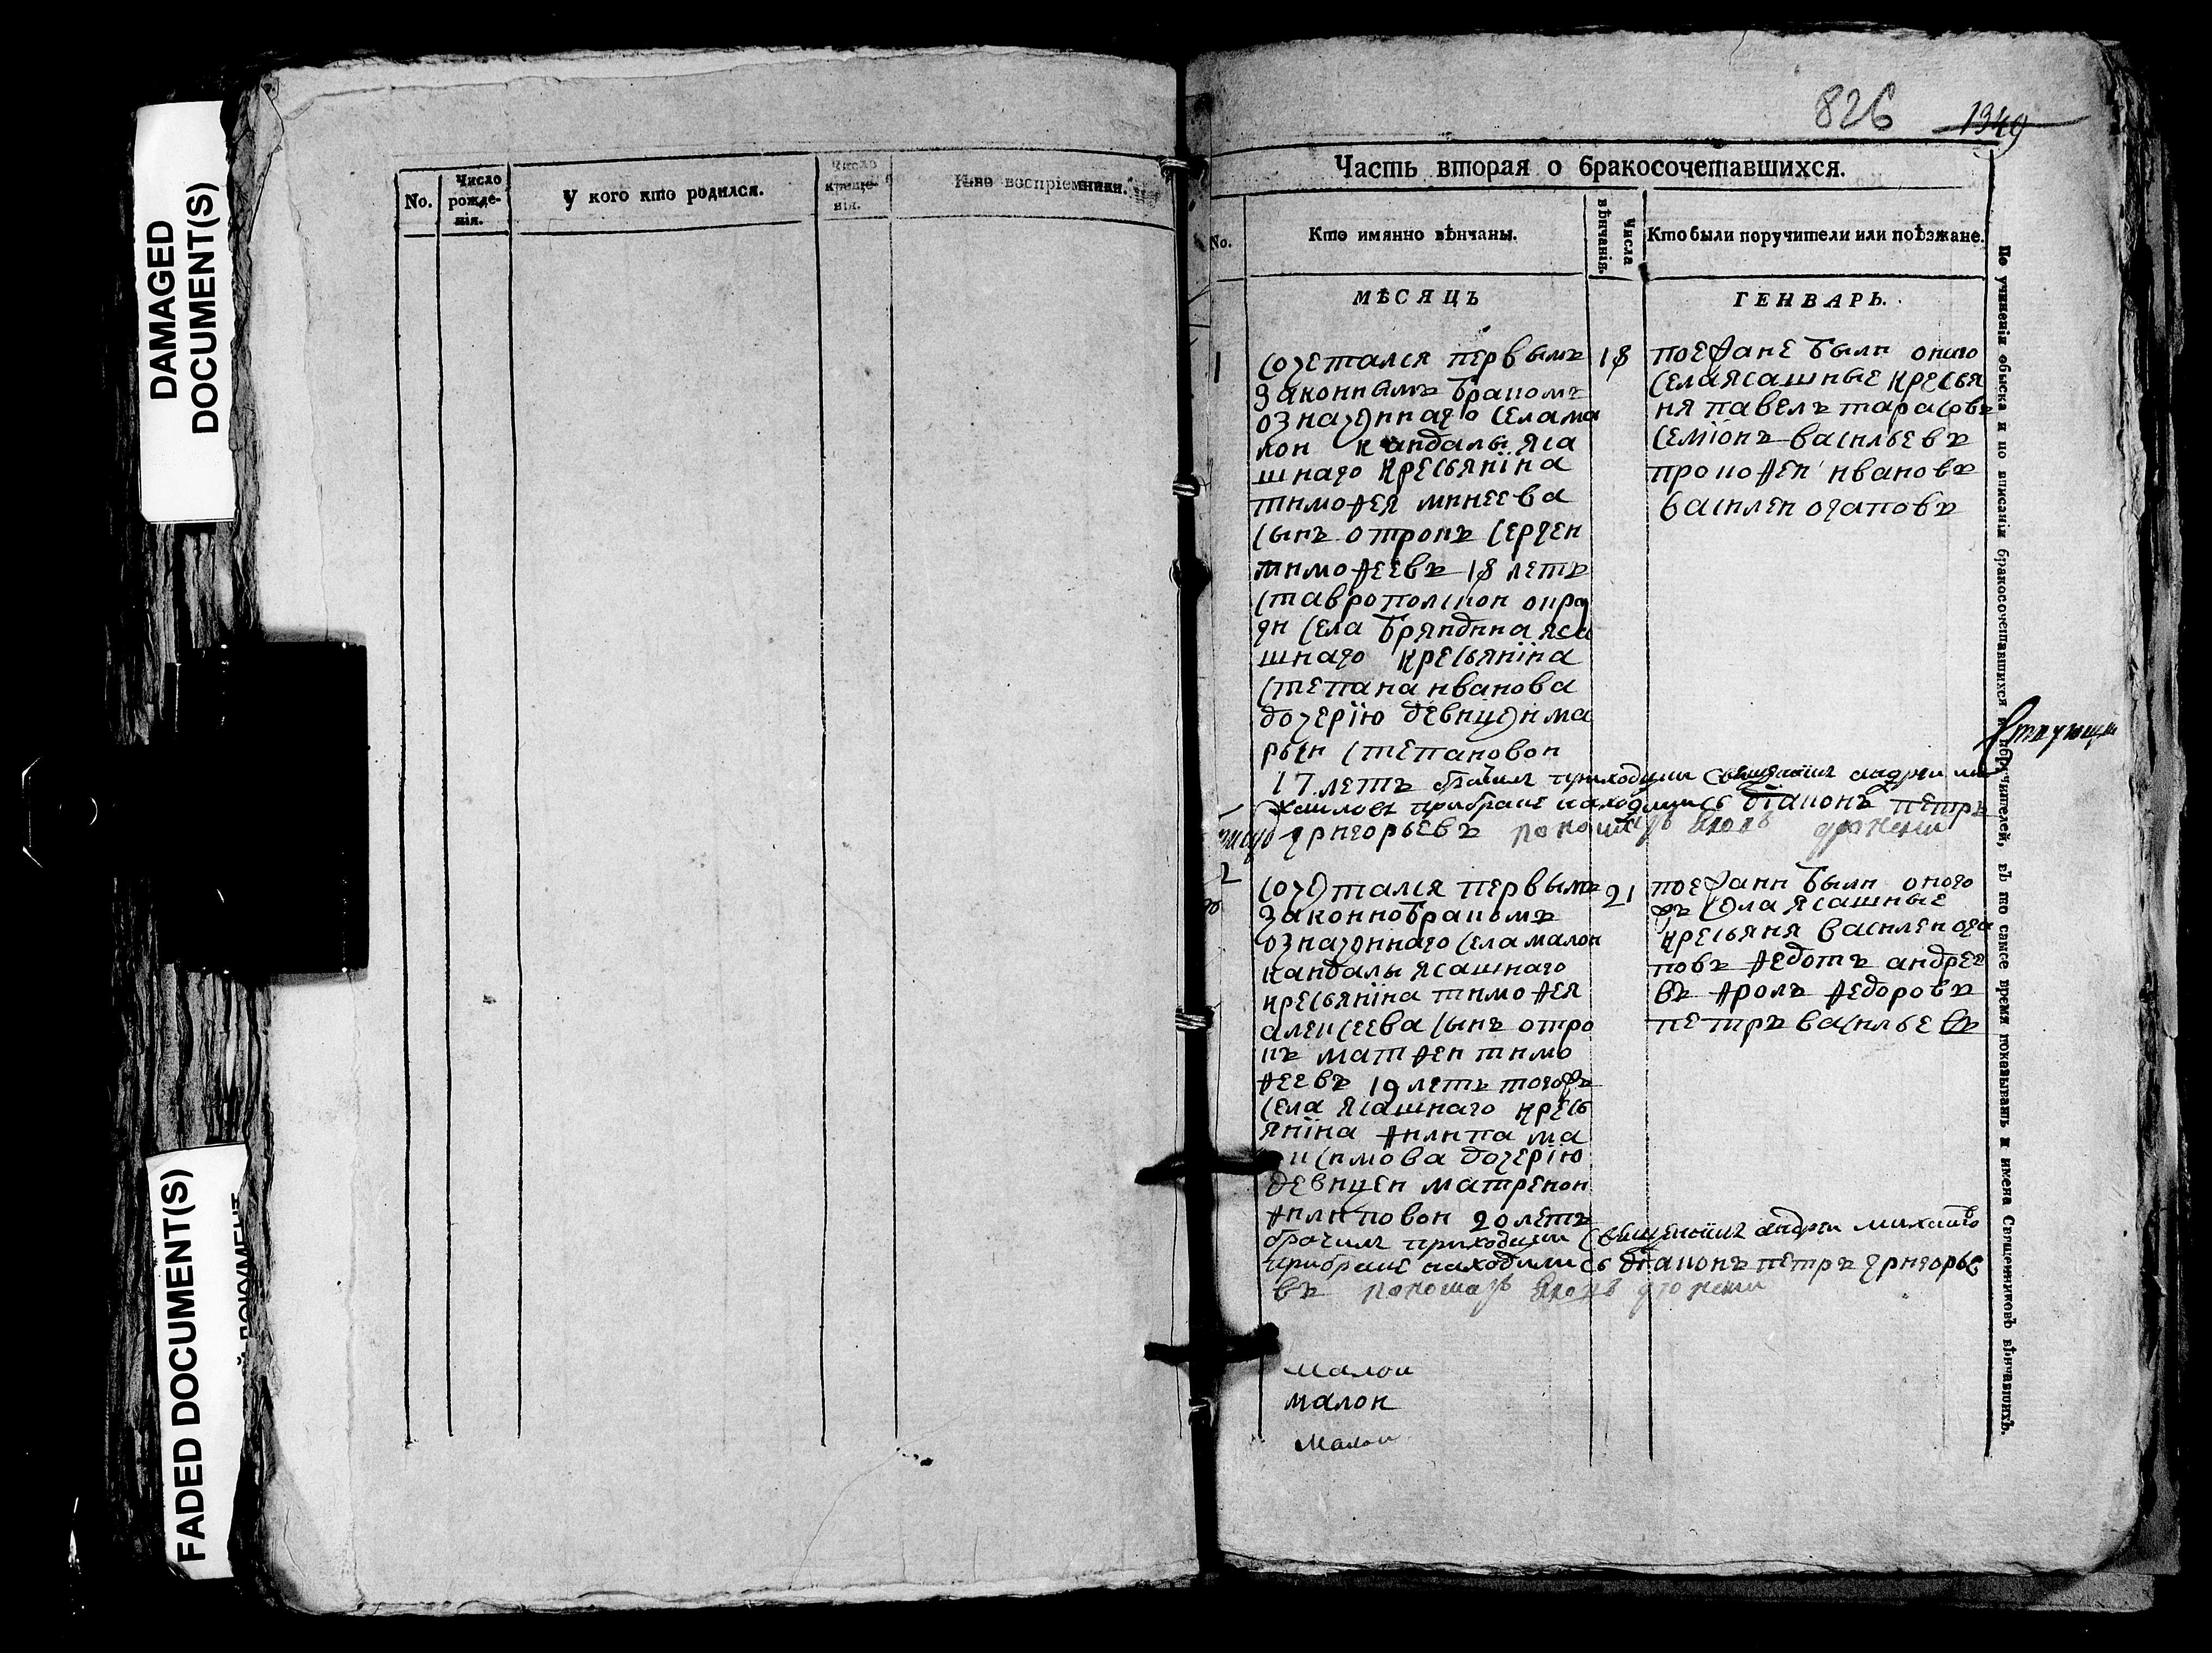 DAMAGED
DOCUMENT(S)
FADED DOCUMENT(S)
No.
Число
рожде-
нія.
У кого кто родился.
Число
креще-
нія.
Кто воспріемники.
826
1349
Часть вторая о бракосочетавшихся.
No.
Кто имянно вѣнчаны.
Числа
вѣнчанія.
Кто были поручители или поѣзжане.
МѢСЯЦЪ
ГЕНВАРЬ.
1
сочетался первымъ
законнымъ бракомъ
означеннаго села ма
лои кандалы яса
шнаго кресьяніна
тимофея минеева
сынъ отрокъ сергеи
тимофеевъ 18 летъ
ставрополскои окру
ги села бряндина яса
шнаго кресьяніна
степана иванова
дочерїю девицеи ма
рьеи степановои
17 летъ
приходции священникъ андреи ми
хаиловъ прибраке находились діаконъ петръ
григорьевъ пономарь
18
поежане были оного
села ясашные кресья
ня павелъ тарасовъ
семіонъ васильевъ
прокофеи ивановъ
василеи агаповъ
2
сочетался первымъ
законнобракомъ
означеннаго села малои
кандалы ясашнаго
кресьяніна тимофея
алексеева сынъ отро
къ матфеи тимо
феевъ 19 летъ тогожъ
села ясашнаго кресь
яніна филипа ма
ксимова дочерію
девицеи матренои
филиповои 20 летъ
брачилъ приходции священникъ андреи михаиловъ
прибраке находились діаконъ петръ григорье
въ пономарь
21
поежани были оного
жъ села ясашные
кресьяня василеи ага
повъ федотъ андрее
въ фролъ федоровъ
петръ васильевъ
малои
малои
малои
По учиненіи обыска и по вписаніи бракосочетавшихся и поручителей, въ то самое время показывать и имена Священниковъ вѣнчавшихъ.